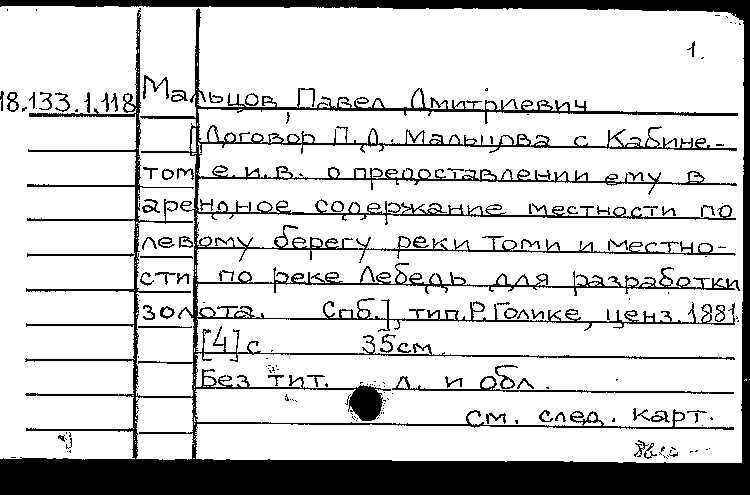 1.
18.133.1.118 Мальцов, Павел Дмитриевич
[Договор П.Д. Мальцова с Кабине-
том е.и.в. о предоставлении ему в
арендное содержание местности по
левому берегу реки Томи и местно-
сти по реке Лебедь для разработки
золота. Спб.], тип. Р. Голике, ценз. 1881.
[4] с. 35см.
Без тит. л. и обл.
см. след. карт.